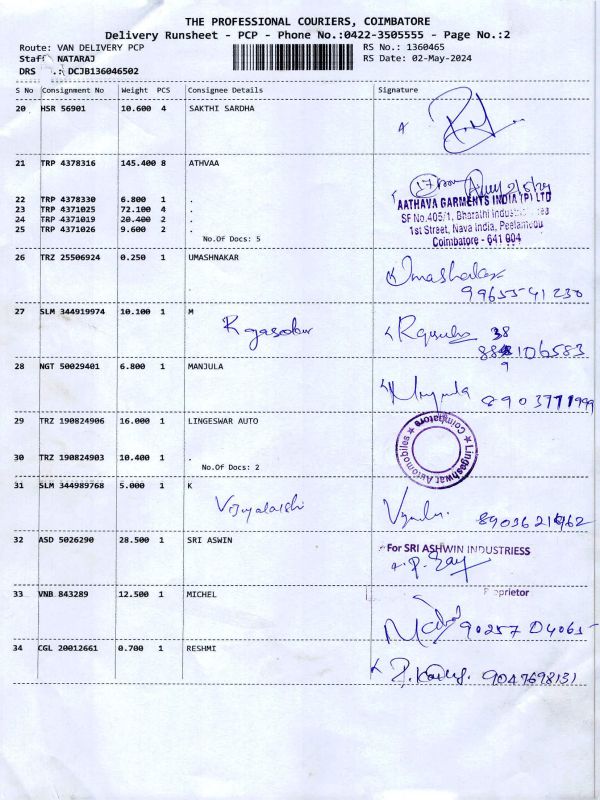 THE PROFESSIONAL COURIERS, COIMBATORE
Delivery Runsheet - PCP - Phone No.:0422-3505555 - Page No.:2
Route: VAN DELIVERY PCP RS No.: 1360465
Staff NATARAJ RS Date: 02-May-2024
DRS .: DCJB136046502
S No Consignment No Weight PCS Consignee Details Signature
20 HSR 56901 10.600 4 SAKTHI SARDHA
21 TRP 4378316 145.400 8 ATHVAA
22 TRP 4378330 6.800 1 .
23 TRP 4371025 72.100 4 .
24 TRP 4371019 20.400 2 .
25 TRP 4371026 9.600 2 .
No.Of Docs: 5
2/5/24
AATHAVA GARMENTS INDIA (P) LTD
SF No.405/1, Bharathi
1st Street, Nava India, Peelamedu
Coimbatore - 641 004
26 TRZ 25506924 0.250 1 UMASHNAKAR
Umashankar
99655 41230
27 SLM 344919974 10.100 1 M
28 NGT 50029401 6.800 1 MANJULA
Manjula 8903771999
29 TRZ 190824906 16.000 1 LINGESWAR AUTO
30 TRZ 190824903 10.400 1 .
No.Of Docs: 2
Lingeshwar Automobiles ★ Coimbatore ★
31 SLM 344989768 5.000 1 K
32 ASD 5026290 28.500 1 SRI ASWIN
For SRI ASHWIN INDUSTRIESS
Proprietor
33 VNB 843289 12.500 1 MICHEL
90257 04065
34 CGL 20012661 0.700 1 RESHMI
9047698131